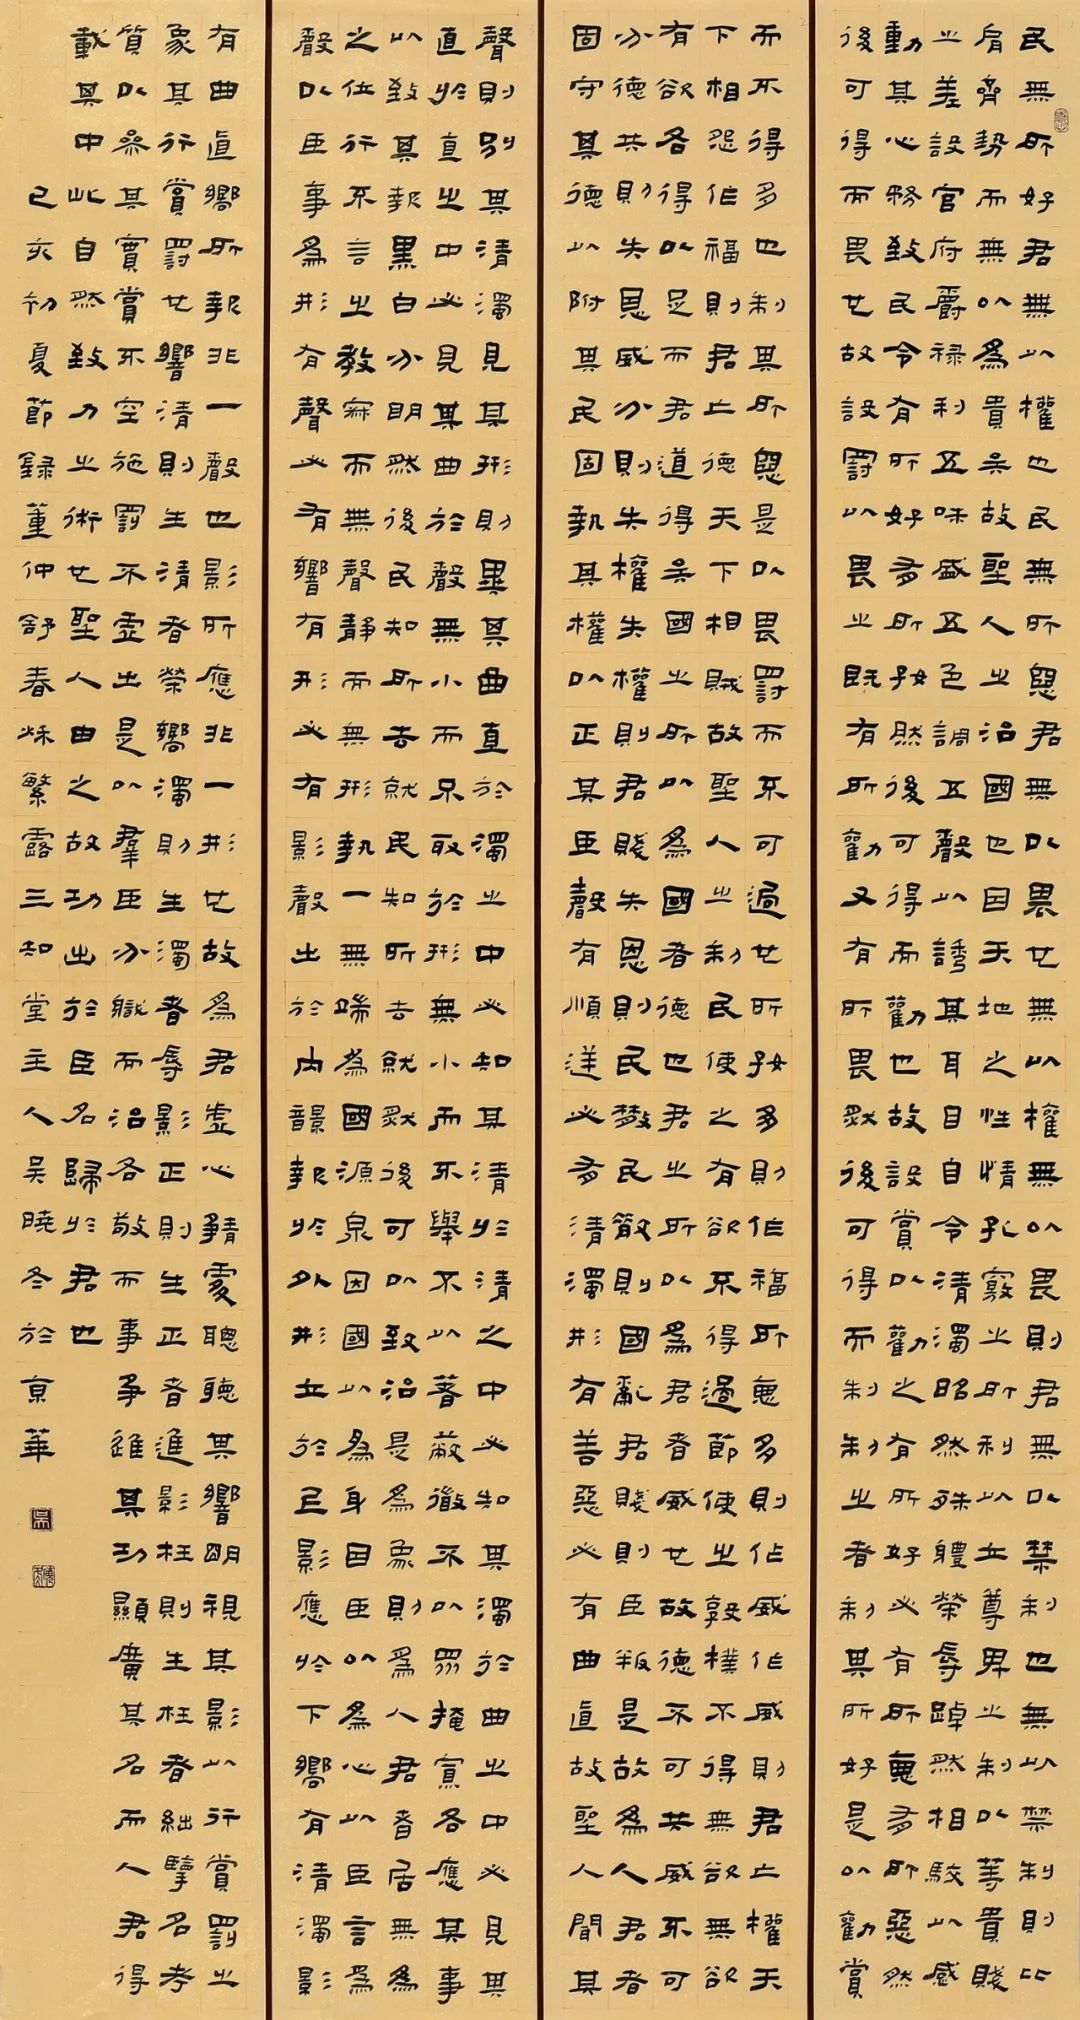 民無所好君無以權也民無所惡君無以畏也無以權無以畏則君無以禁制也無以禁制則比
肩齊勢而無以為貴矣故聖人之治國也因天地之性情孔竅之所利以立尊卑之制以等貴賤
之差設官府爵祿利五味盛五色調五聲以誘其耳目自令清濁昭然殊體榮辱踔然相駮以感
動其心務致民令有所好有所好然後可得而勸也故設賞以勸之有所好必有所惡有所惡然
後可得而畏也故設罰以畏之既有所勸又有所畏然後可得而制制之者制其所好是以勸賞
而不得多也制其所惡是以畏罰而不可過也所好多則作福所惡多則作威作威則君亡權天
下相怨作福則君亡德天下相賊故聖人之制民使之有欲不得過節使之敦樸不得無欲無欲
有欲各得以足而君道得矣國之所以為國者德也君之所以為君者威也故德不可共威不可
分德共則失恩威分則失權失權則君賤失恩則民散民散則國亂君賤則臣叛是故為人君者
固守其德以附其民固執其權以正其臣聲有順逆必有清濁形有善惡必有曲直故聖人聞其
聲則別其清濁見其形則異其曲直於濁之中必知其清於清之中必知其濁於曲之中必見其
直於直之中必見其曲於聲無小而不取於形無小而不舉不以著蔽微不以眾掩寡各應其事
以致其報黑白分明然後民知所去就民知所去就然後可以致治是為象則為人君者居無為
之位行不言之教寂而無聲靜而無形執一無端為國源泉因國以為身因臣以為心以臣言為
聲以臣事為形有聲必有響有形必有影聲出於內響報於外形立於上影應於下響有清濁影
有曲直響所報非一聲也影所應非一形也故為君虛心靜處聰聽其響明視其影以行賞罰之
象其行賞罰也響清則生清者榮響濁則生濁者辱影正則生正者進影枉則生枉者絀擥名考
質以參其實賞不空施罰不虛出是以群臣分職而治各敬而事爭進其功顯廣其名而人君得
載其中此自然致力之術也聖人由之故功出於臣名歸於君也
己亥初夏節錄董仲舒春秋繁露三知堂主人吳曉冬於京華